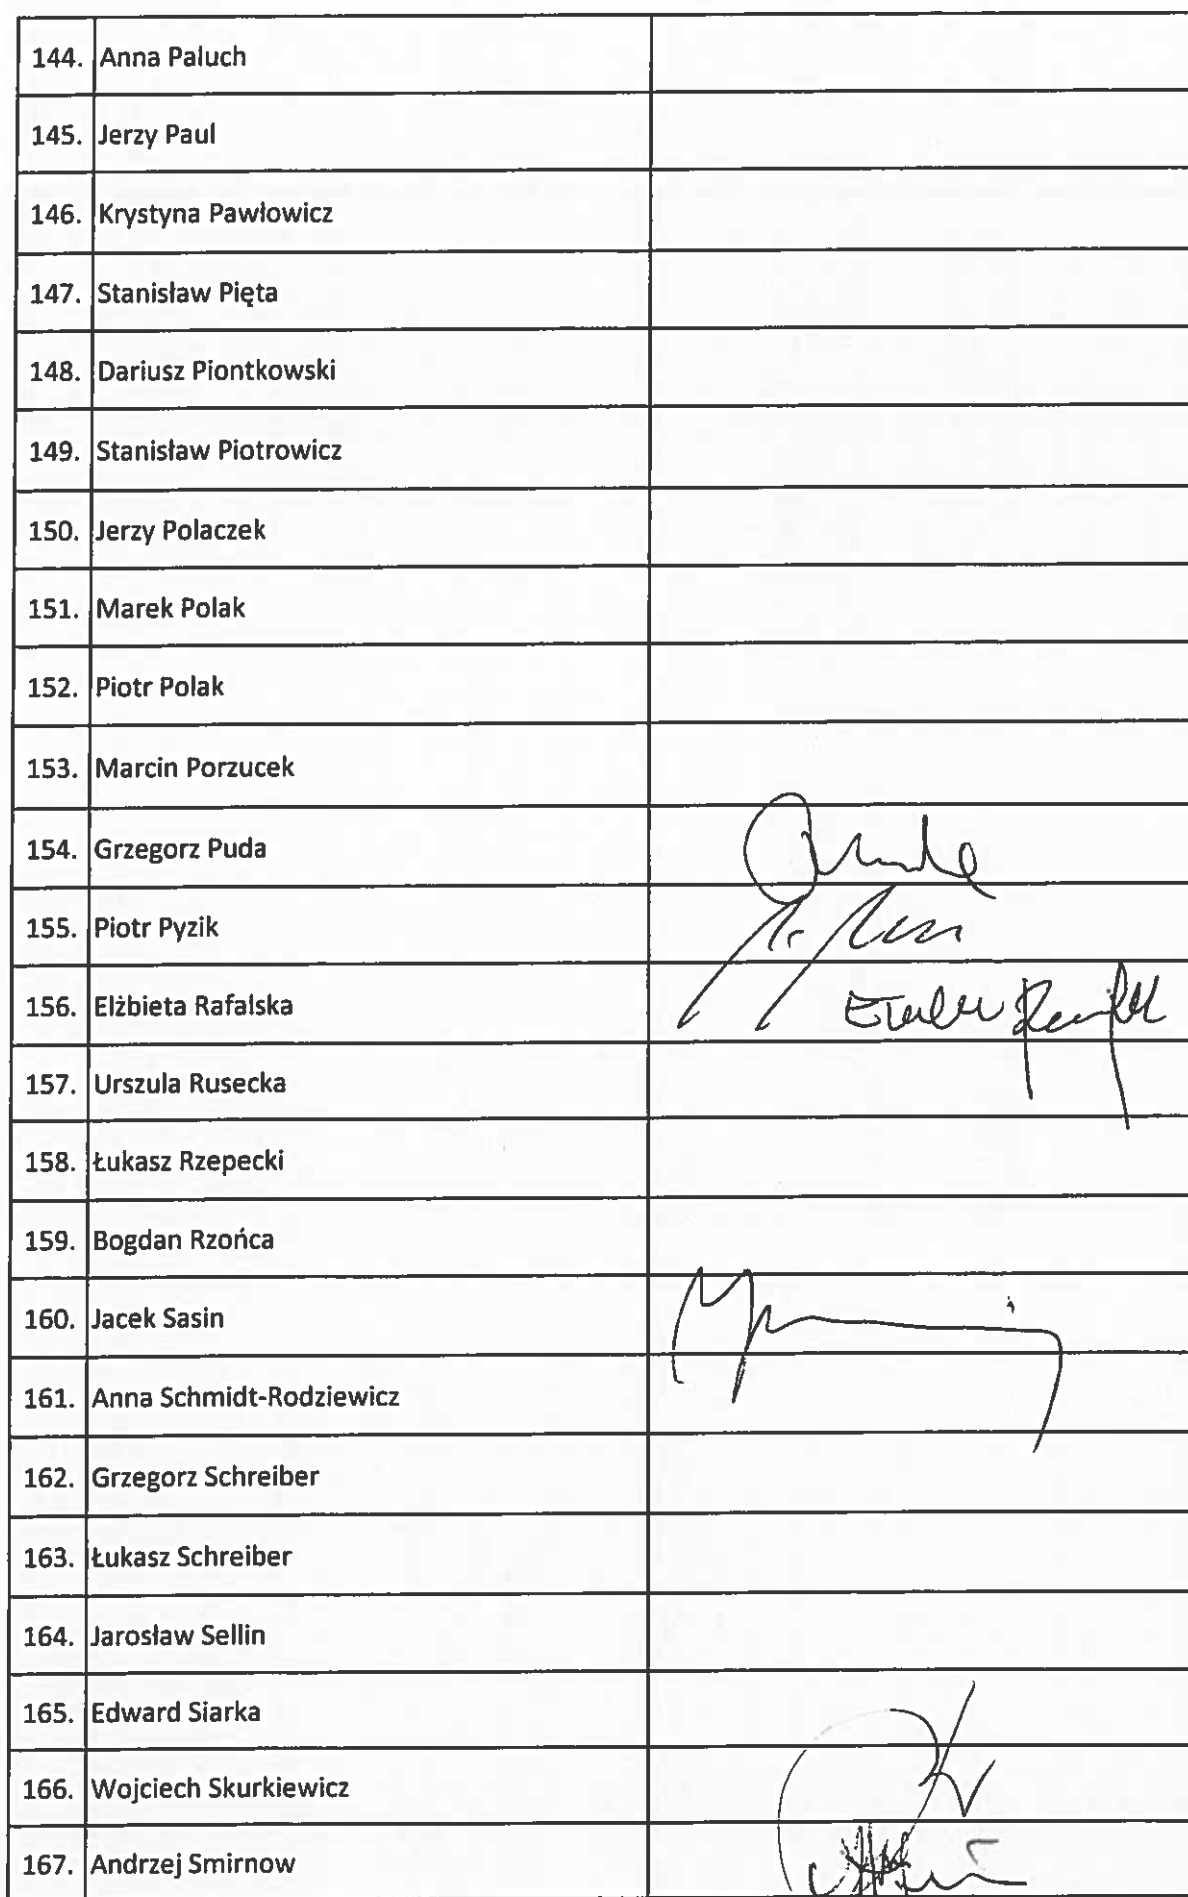 144. Anna Paluch
145. Jerzy Paul
146. Krystyna Pawłowicz
147. Stanisław Pięta
148. Dariusz Piontkowski
149. Stanisław Piotrowicz
150. Jerzy Polaczek
151. Marek Polak
152. Piotr Polak
153. Marcin Porzucek
154. Grzegorz Puda
155. Piotr Pyzik
156. Elżbieta Rafalska
157. Urszula Rusecka
158. Łukasz Rzepecki
159. Bogdan Rzońca
160. Jacek Sasin
161. Anna Schmidt-Rodziewicz
162. Grzegorz Schreiber
163. Łukasz Schreiber
164. Jarosław Sellin
165. Edward Siarka
166. Wojciech Skurkiewicz
167. Andrzej Smirnow